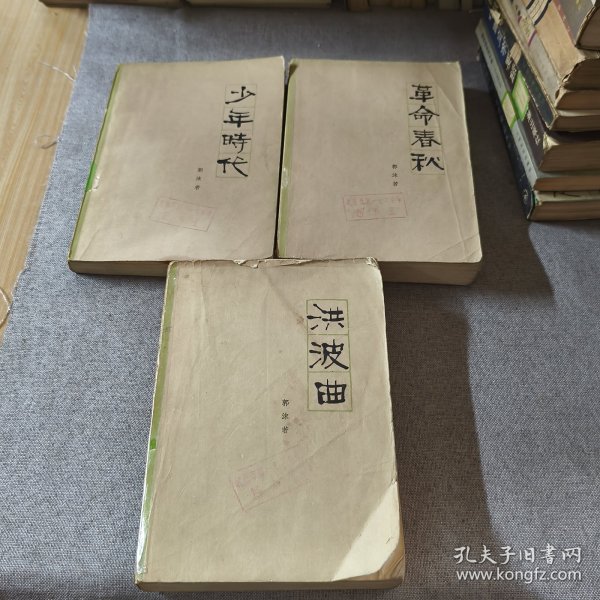 少年時代
郭沫著
革命春秋
郭沫著
洪波曲
郭沫著
孔夫子旧书网
www.kongfz.com